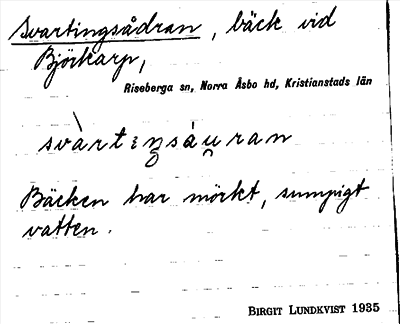 Svartingsådran, bäck vid
Björkarp,
Riseberga sn, Norra Åsbo hd, Kristianstads län
Bäcken har mörkt, sumpigt
vatten.
BIRGIT LUNDKVIST 1935